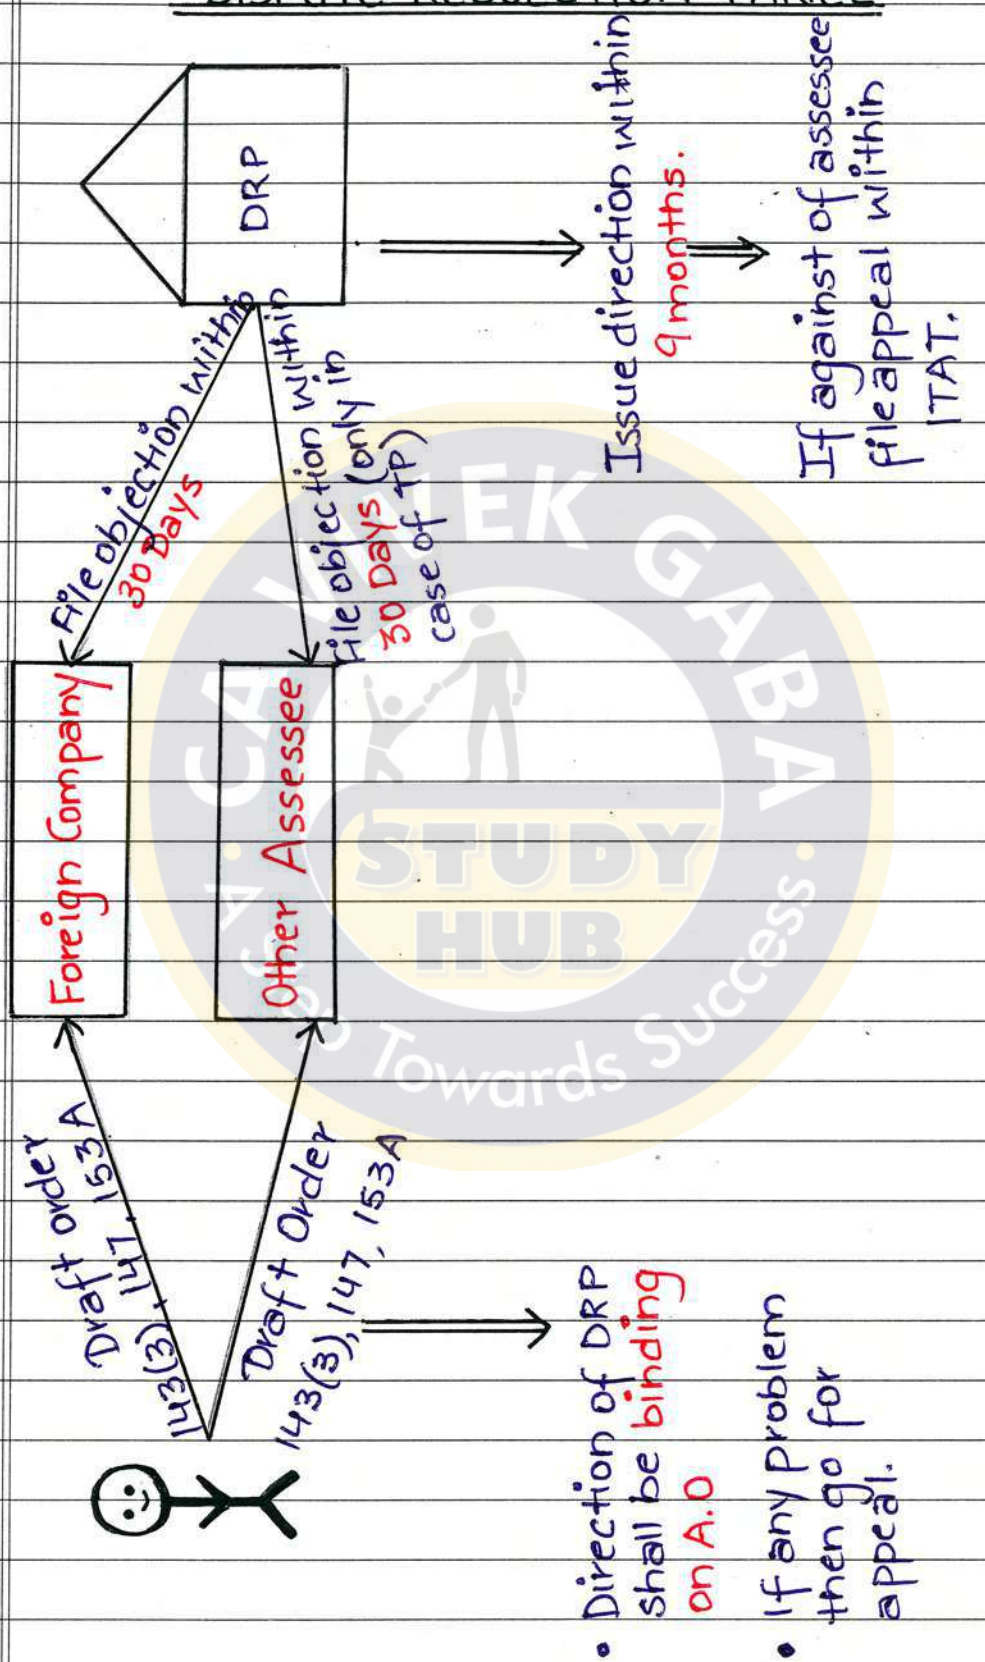 DISPUTE RESOLUTION PANEL
Draft order
143(3), 147, 153A
Draft Order
143(3), 147, 153A
Foreign Company
Other Assessee
File objection within
30 Days
File objection within
30 Days (only in
case of TP)
DRP
Issue direction within
9 months.
If against of assessee
file appeal within
ITAT.
• Direction of DRP
shall be binding
on A.O
• If any problem
then go for
appeal.
CA VIVEK GABA
STUDY
HUB
A Step Towards Success